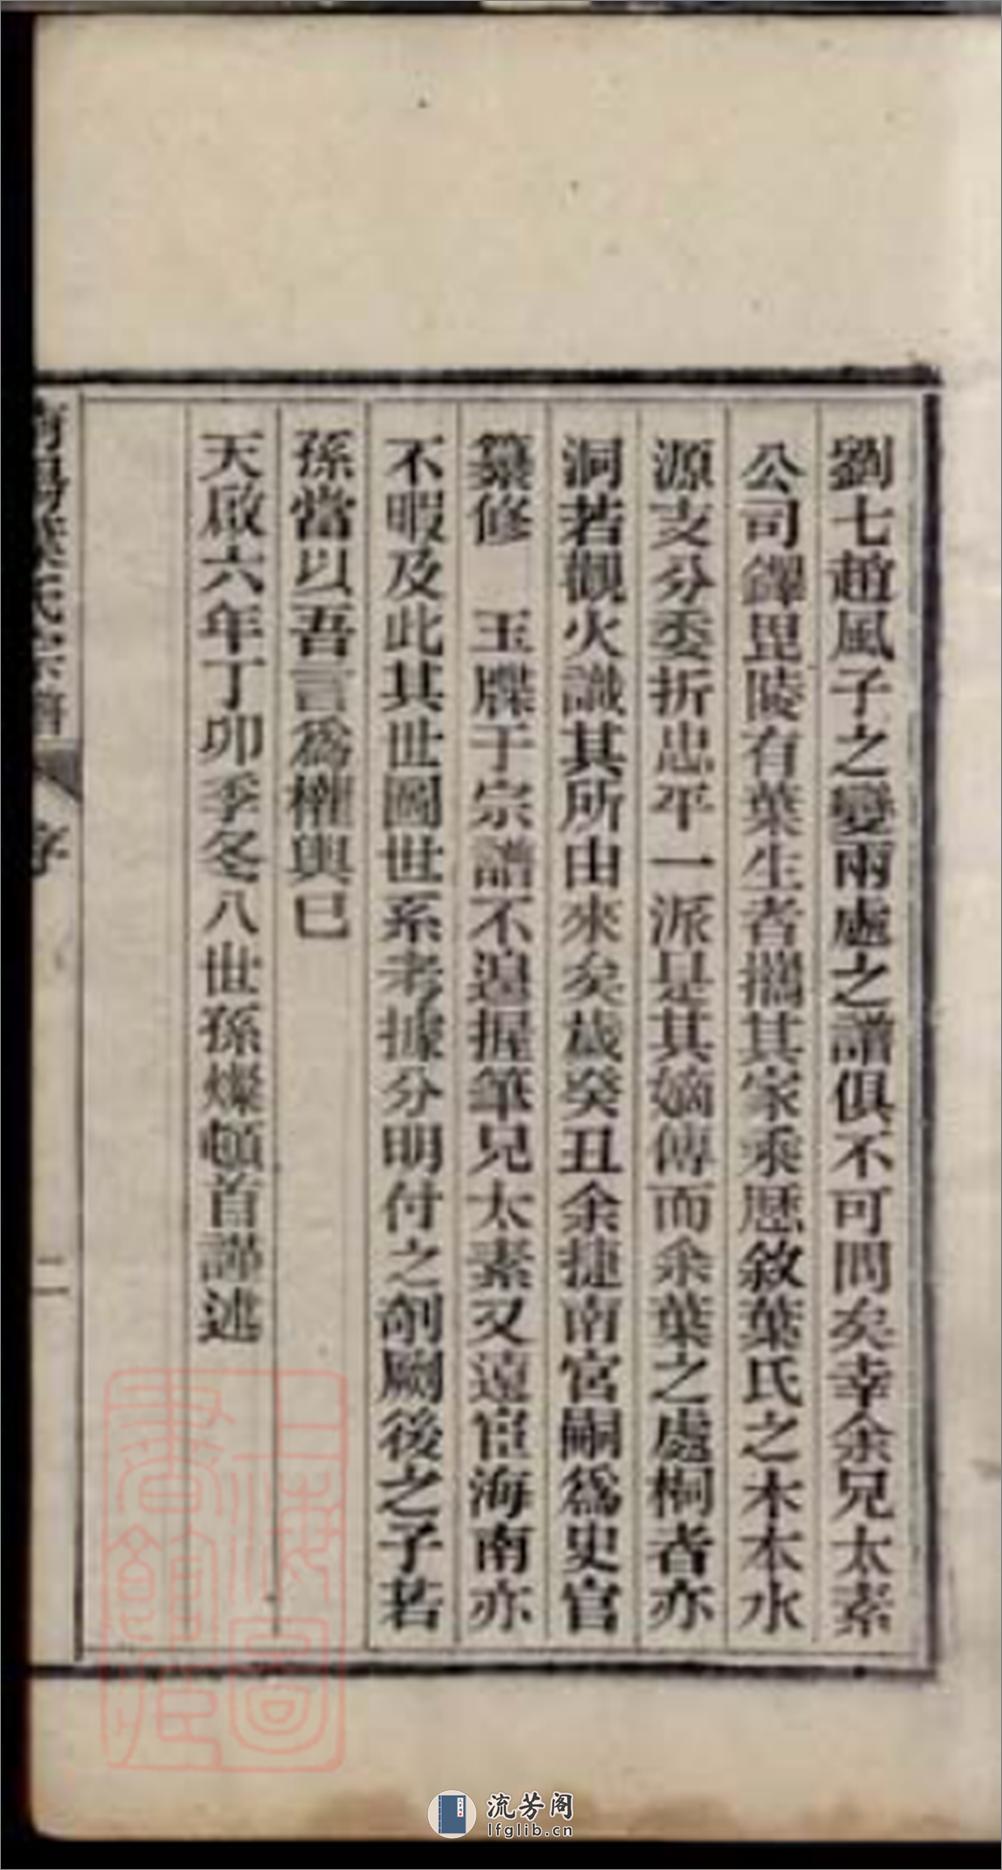 劉七趙風子之變兩處之譜俱不可問矣幸余兄太素
公司鐸毘陵有葉生者攜其家乘歷敘葉氏之木本水
源支分委折忠平一派是其嫡傳而余葉之處桐者亦
洞若觀火識其所由來矣歲癸丑余捷南宮嗣爲史官
纂修　玉牒于宗譜不遑握筆兄太素又遠宦海南亦
不暇及此其世圖世系考據分明付之剞劂後之子若
孫當以吾言爲權輿巳
天啟六年丁卯季冬八世孫燦頓首謹述
葉氏宗譜
序
二
上海圖書館藏
流芳阁
lfglib.cn